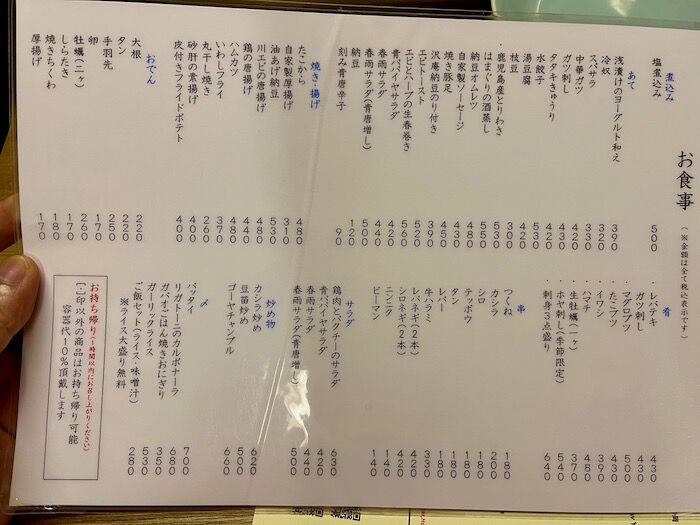 お食事 (※金額は全て税込表示です)
煮込み
塩煮込み 500
あて
浅漬けのヨーグルト和え 390
冷奴 320
スパサラ 230
中華ガツ 420
ガツ刺し 430
タタキきゅうり 320
水餃子 420
湯豆腐 420
枝豆 350
鹿児島産とりわさ 530
はまぐりの酒蒸し 550
納豆オムレツ 480
自家製ソーセージ 450
焼き豚足 390
沢庵納豆のり付き 320
エビトースト 520
エビとハーブの生春巻き 560
青パパイヤサラダ 420
春雨サラダ 440
春雨サラダ(青唐増し) 500
納豆 120
刻み青唐辛子 90
焼き揚げ
たこから 480
自家製厚揚げ 310
油あげ納豆 530
川エビの唐揚げ 480
鶏の唐揚げ 480
ハムカツ 440
いわしフライ 370
丸干し焼き 260
砂肝の素揚げ 400
皮付きフライドポテト 400
おでん
大根 220
タン 220
手羽先 250
卵 170
牡蠣(二ヶ) 260
しらたき 170
焼きちくわ 180
厚揚げ 170
肴
レバテキ 430
ガツ刺し 430
マグロブツ 500
たこブツ 430
・イワシ 390
・ハマチ 480
・生牡蠣(二ヶ) 370
・ホヤ刺し(季節限定) 540
・刺身3点盛り 640
串
つくね 180
カシラ 200
シロ 180
テッポウ 180
タン 180
レバー 180
牛ハラミ 330
レバネギ(2本) 420
シロネギ(2本) 420
ニンニク 140
ピーマン 140
サラダ
鶏肉とパクチーのサラダ 630
青パパイヤサラダ 420
春雨サラダ 440
春雨サラダ(青唐増し) 500
炒め物
カシラ炒め 620
豆苗炒め 500
ゴーヤチャンプル 660
〆
パッタイ 700
リガトーニのカルボナーラ 680
ガパオごはん焼きおにぎり 350
ガーリックライス 530
ご飯セット(ライス・味噌汁) 280
※ライス大盛り無料
お持ち帰り(1時間以内にお召し上がりください)
(・)印以外の商品はお持ち帰り可能
容器代10%頂戴します